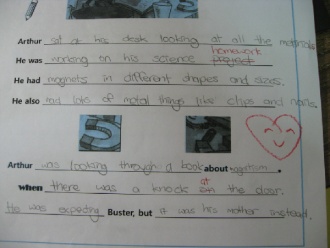 Arthur sat at his desk looking at all the materials.
homework
He was working on his science project.
He had magnets in different shapes and sizes.
He also had lots of metal things like clips and nails.
Arthur was looking through a book about magnetism.
at
when there was a knock on the door.
He was expecting Buster, but it was his mother instead.